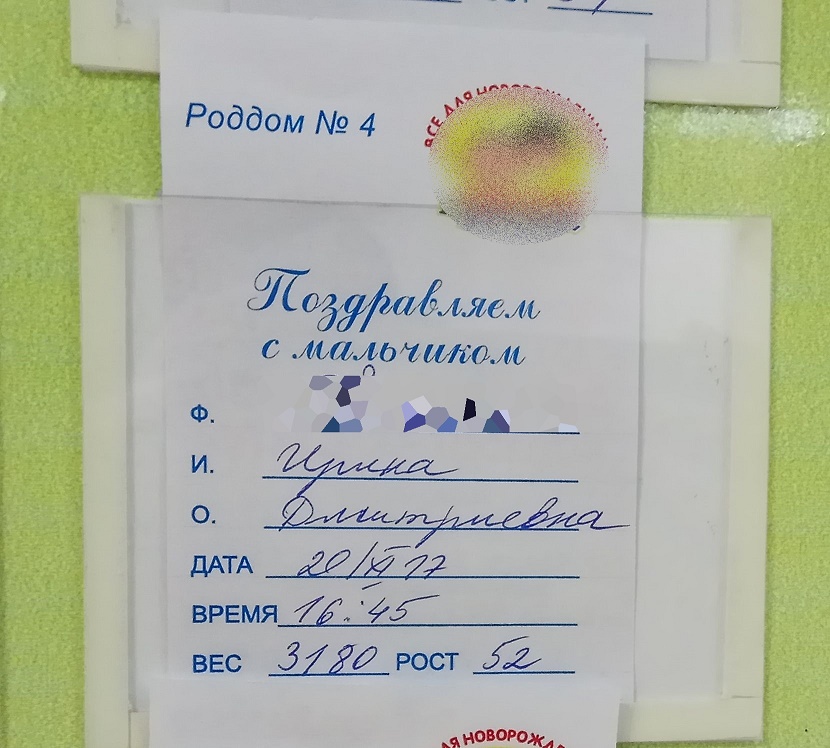 Роддом № 4
ВСЕ ДЛЯ
Поздравляем
с мальчиком
Ф.
И. Ирина
О. Дмитриевна
ДАТА 20/XI 17
ВРЕМЯ 16:45
ВЕС 3180 РОСТ 52